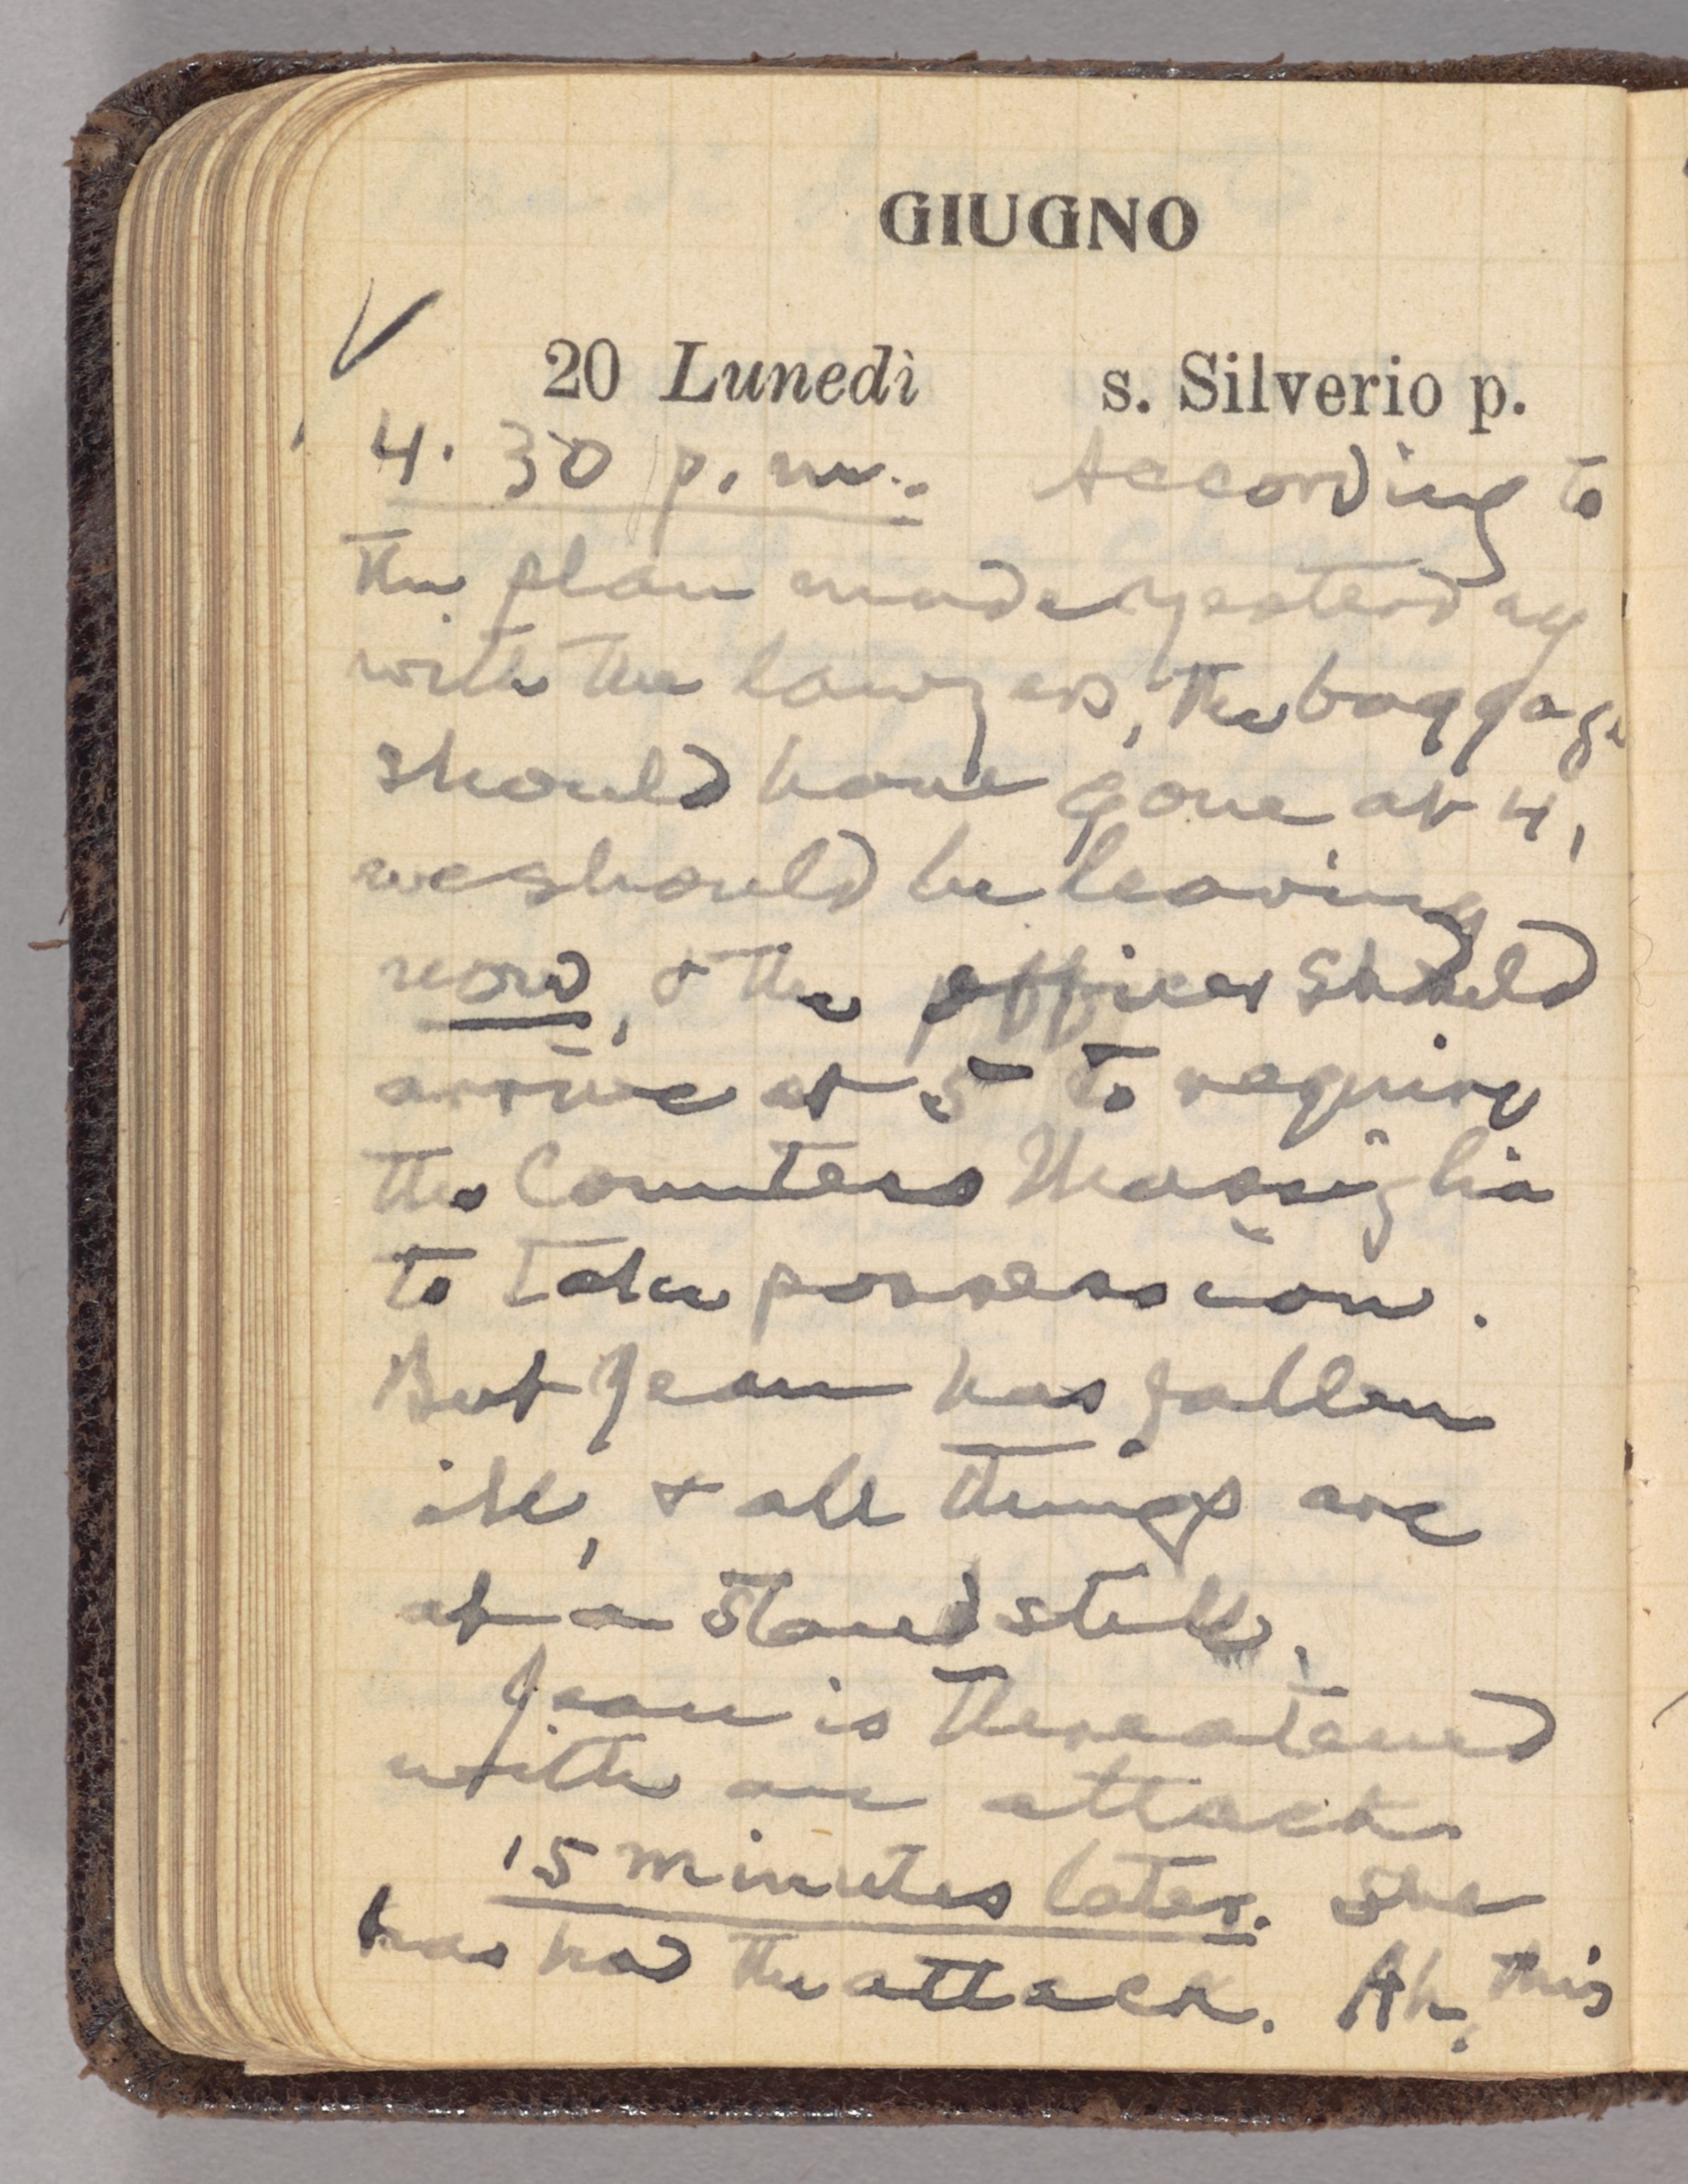 GIUGNO
20 Lunedì s. Silverio p.
4.30 p.m.: According to
the plan made yesterday
with the lawyers, the baggage
should have gone at 4,
we should be leaving
now, & the officer should
arrive at 5 to require
the Countess Massiglia
to take possession.
But Jean has fallen
ill, & all things are
at a standstill.
Jean is threatened
with an attack
15 minutes later. She
has had the attack. Ah, this